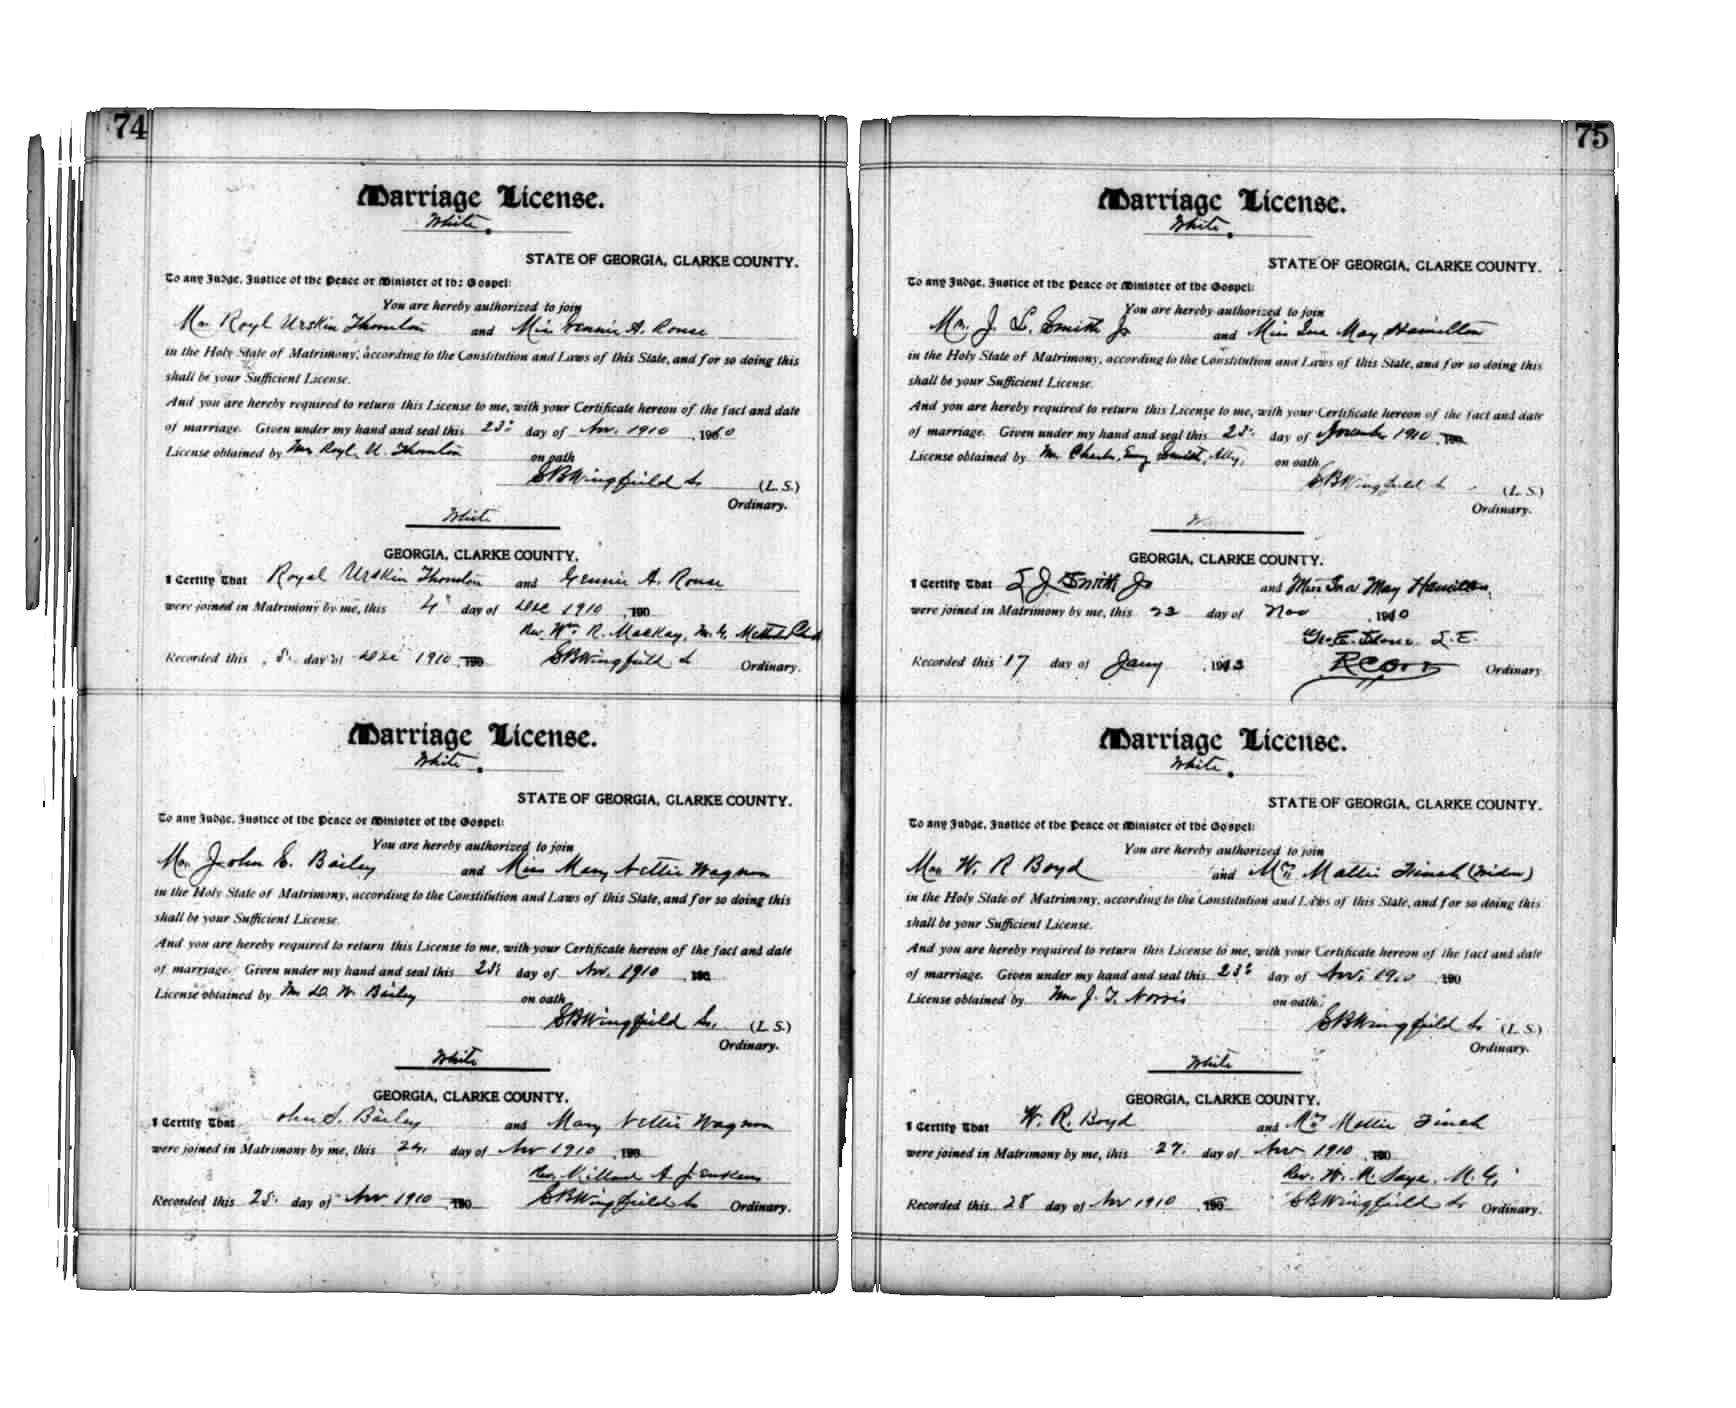 74
Marriage License.
White.
STATE OF GEORGIA, CLARKE COUNTY.
To any Judge, Justice of the Peace or Minister of the Gospel:
You are hereby authorized to join
Mr. Royl Urskin Thornton and Miss Gennie A. Rouse
in the Holy State of Matrimony, according to the Constitution and Laws of this State, and for so doing this
shall be your Sufficient License.
And you are hereby required to return this License to me, with your Certificate hereon of the fact and date
of marriage. Given under my hand and seal this 23" day of Nov. 1910, 1910
License obtained by Mr Royl. U. Thornton on oath
S B Wingfield (L. S.)
Ordinary.
White
GEORGIA, CLARKE COUNTY.
I Certify That Royal Urskin Thornton and Gennie A. Rouse
were joined in Matrimony by me, this 4" day of Dec 1910, 190
Rev. Wm. R. Mackay, M. G.
Recorded this 8. day of Dec 1910, 190 S B Wingfield Ordinary.
Marriage License.
White.
STATE OF GEORGIA, CLARKE COUNTY.
To any Judge, Justice of the Peace or Minister of the Gospel:
You are hereby authorized to join
Mr. John S. Bailey and Miss Mary Nettie Wagnon
in the Holy State of Matrimony, according to the Constitution and Laws of this State, and for so doing this
shall be your Sufficient License.
And you are hereby required to return this License to me, with your Certificate hereon of the fact and date
of marriage. Given under my hand and seal this 23: day of Nov. 1910, 190
License obtained by Mr D. W. Bailey on oath
S B Wingfield (L. S.)
Ordinary.
White
GEORGIA, CLARKE COUNTY.
I Certify That ohn S. Bailey and Mary Nettie Wagnon
were joined in Matrimony by me, this 24, day of Nov 1910, 190
Rev. Millard A. Jenkens
Recorded this 25. day of Nov 1910, 190 S B Wingfield Ordinary.
75
Marriage License.
White.
STATE OF GEORGIA, CLARKE COUNTY.
To any Judge, Justice of the Peace or Minister of the Gospel:
You are hereby authorized to join
Mr. J. L. Smith Jr and Miss Ina May Hamilton
in the Holy State of Matrimony, according to the Constitution and Laws of this State, and for so doing this
shall be your Sufficient License.
And you are hereby required to return this License to me, with your Certificate hereon of the fact and date
of marriage. Given under my hand and seal this 23. day of November 1910, 190
License obtained by Mr Charles on oath
S B Wingfield (L. S.)
Ordinary.
GEORGIA, CLARKE COUNTY.
I Certify That L J Smith Jr and Miss Ina May Hamilton
were joined in Matrimony by me, this 22 day of Nov, 1910
Recorded this 17 day of Jany, 1913 R C Orr Ordinary
Marriage License.
White.
STATE OF GEORGIA, CLARKE COUNTY.
To any Judge, Justice of the Peace or Minister of the Gospel:
You are hereby authorized to join
Mr. W. R Boyd and Mrs Mattie Finch (Widow)
in the Holy State of Matrimony, according to the Constitution and Laws of this State, and for so doing this
shall be your Sufficient License.
And you are hereby required to return this License to me, with your Certificate hereon of the fact and date
of marriage. Given under my hand and seal this 23: day of Nov. 1910, 190
License obtained by Mr J. T. Norris on oath
S B Wingfield (L. S.)
Ordinary.
White
GEORGIA, CLARKE COUNTY.
I Certify That W. R. Boyd and Mrs Mattie Finch
were joined in Matrimony by me, this 27. day of Nov 1910, 190
Rev. W. M. Saye. M. G.
Recorded this 28 day of Nov 1910, 190 S B Wingfield Ordinary.